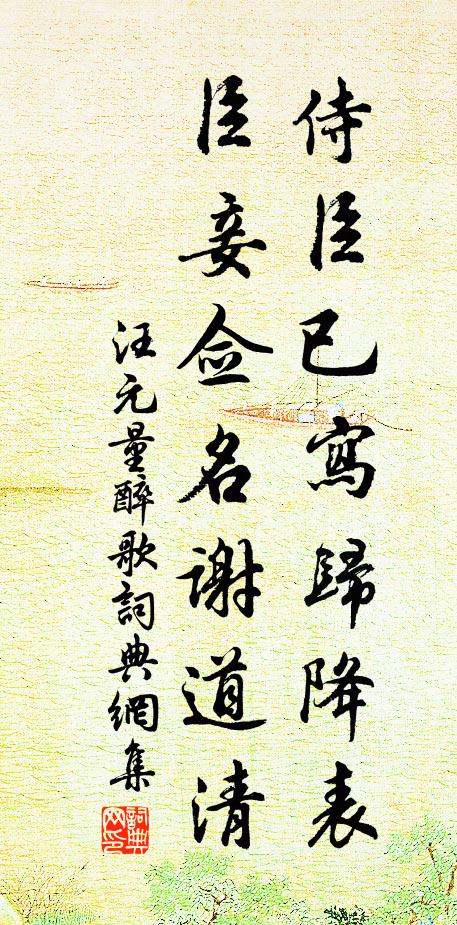 侍臣已寫歸降表
臣妾佥名謝道清
汪元量醉歌詞典網集
詞典網印